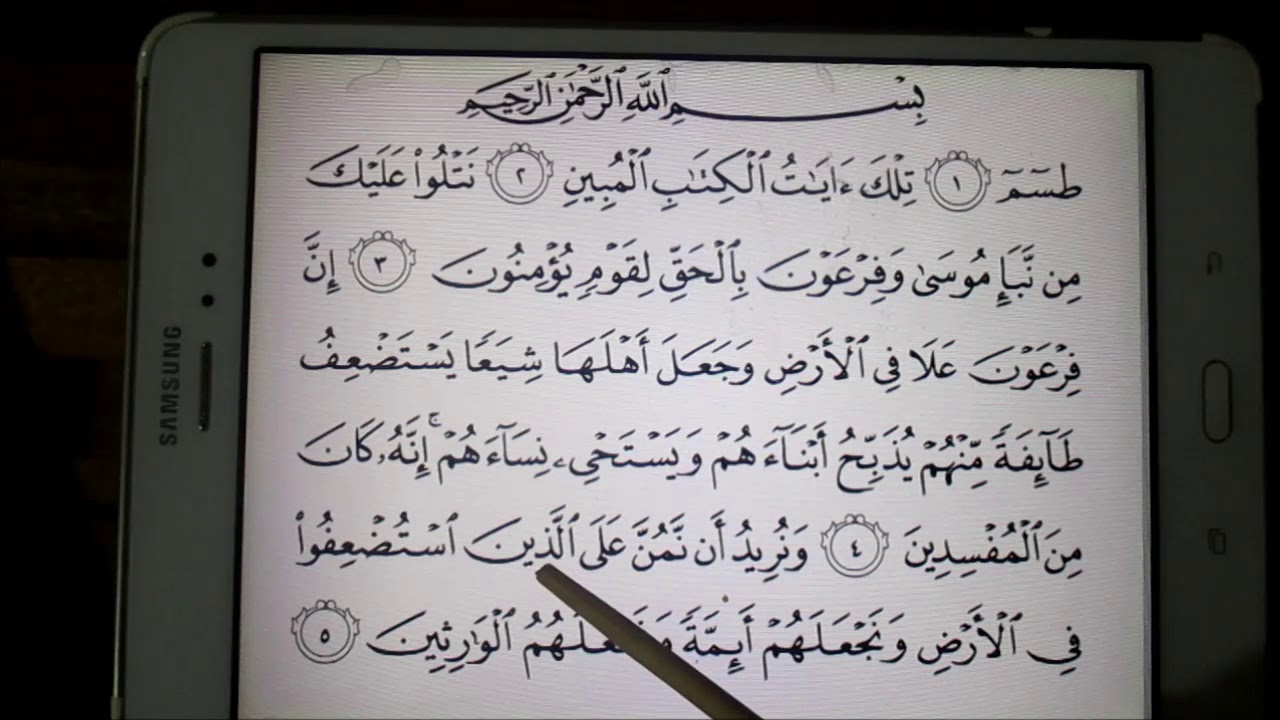 بِسْمِ ٱللَّهِ ٱلرَّحْمَٰنِ ٱلرَّحِيمِ
طسٓمٓ ١ تِلْكَ ءَايَٰتُ ٱلْكِتَٰبِ ٱلْمُبِينِ ٢ نَتْلُوا۟ عَلَيْكَ
مِن نَّبَإِ مُوسَىٰ وَفِرْعَوْنَ بِٱلْحَقِّ لِقَوْمٍ يُؤْمِنُونَ ٣ إِنَّ
فِرْعَوْنَ عَلَا فِى ٱلْأَرْضِ وَجَعَلَ أَهْلَهَا شِيَعًا يَسْتَضْعِفُ
طَآئِفَةً مِّنْهُمْ يُذَبِّحُ أَبْنَآءَهُمْ وَيَسْتَحْىِۦ نِسَآءَهُمْ ۚ إِنَّهُۥ كَانَ
مِنَ ٱلْمُفْسِدِينَ ٤ وَنُرِيدُ أَن نَّمُنَّ عَلَى ٱلَّذِينَ ٱسْتُضْعِفُوا۟
فِى ٱلْأَرْضِ وَنَجْعَلَهُمْ أَئِمَّةً وَنَجْعَلَهُمُ ٱلْوَٰرِثِينَ ٥
SAMSUNG